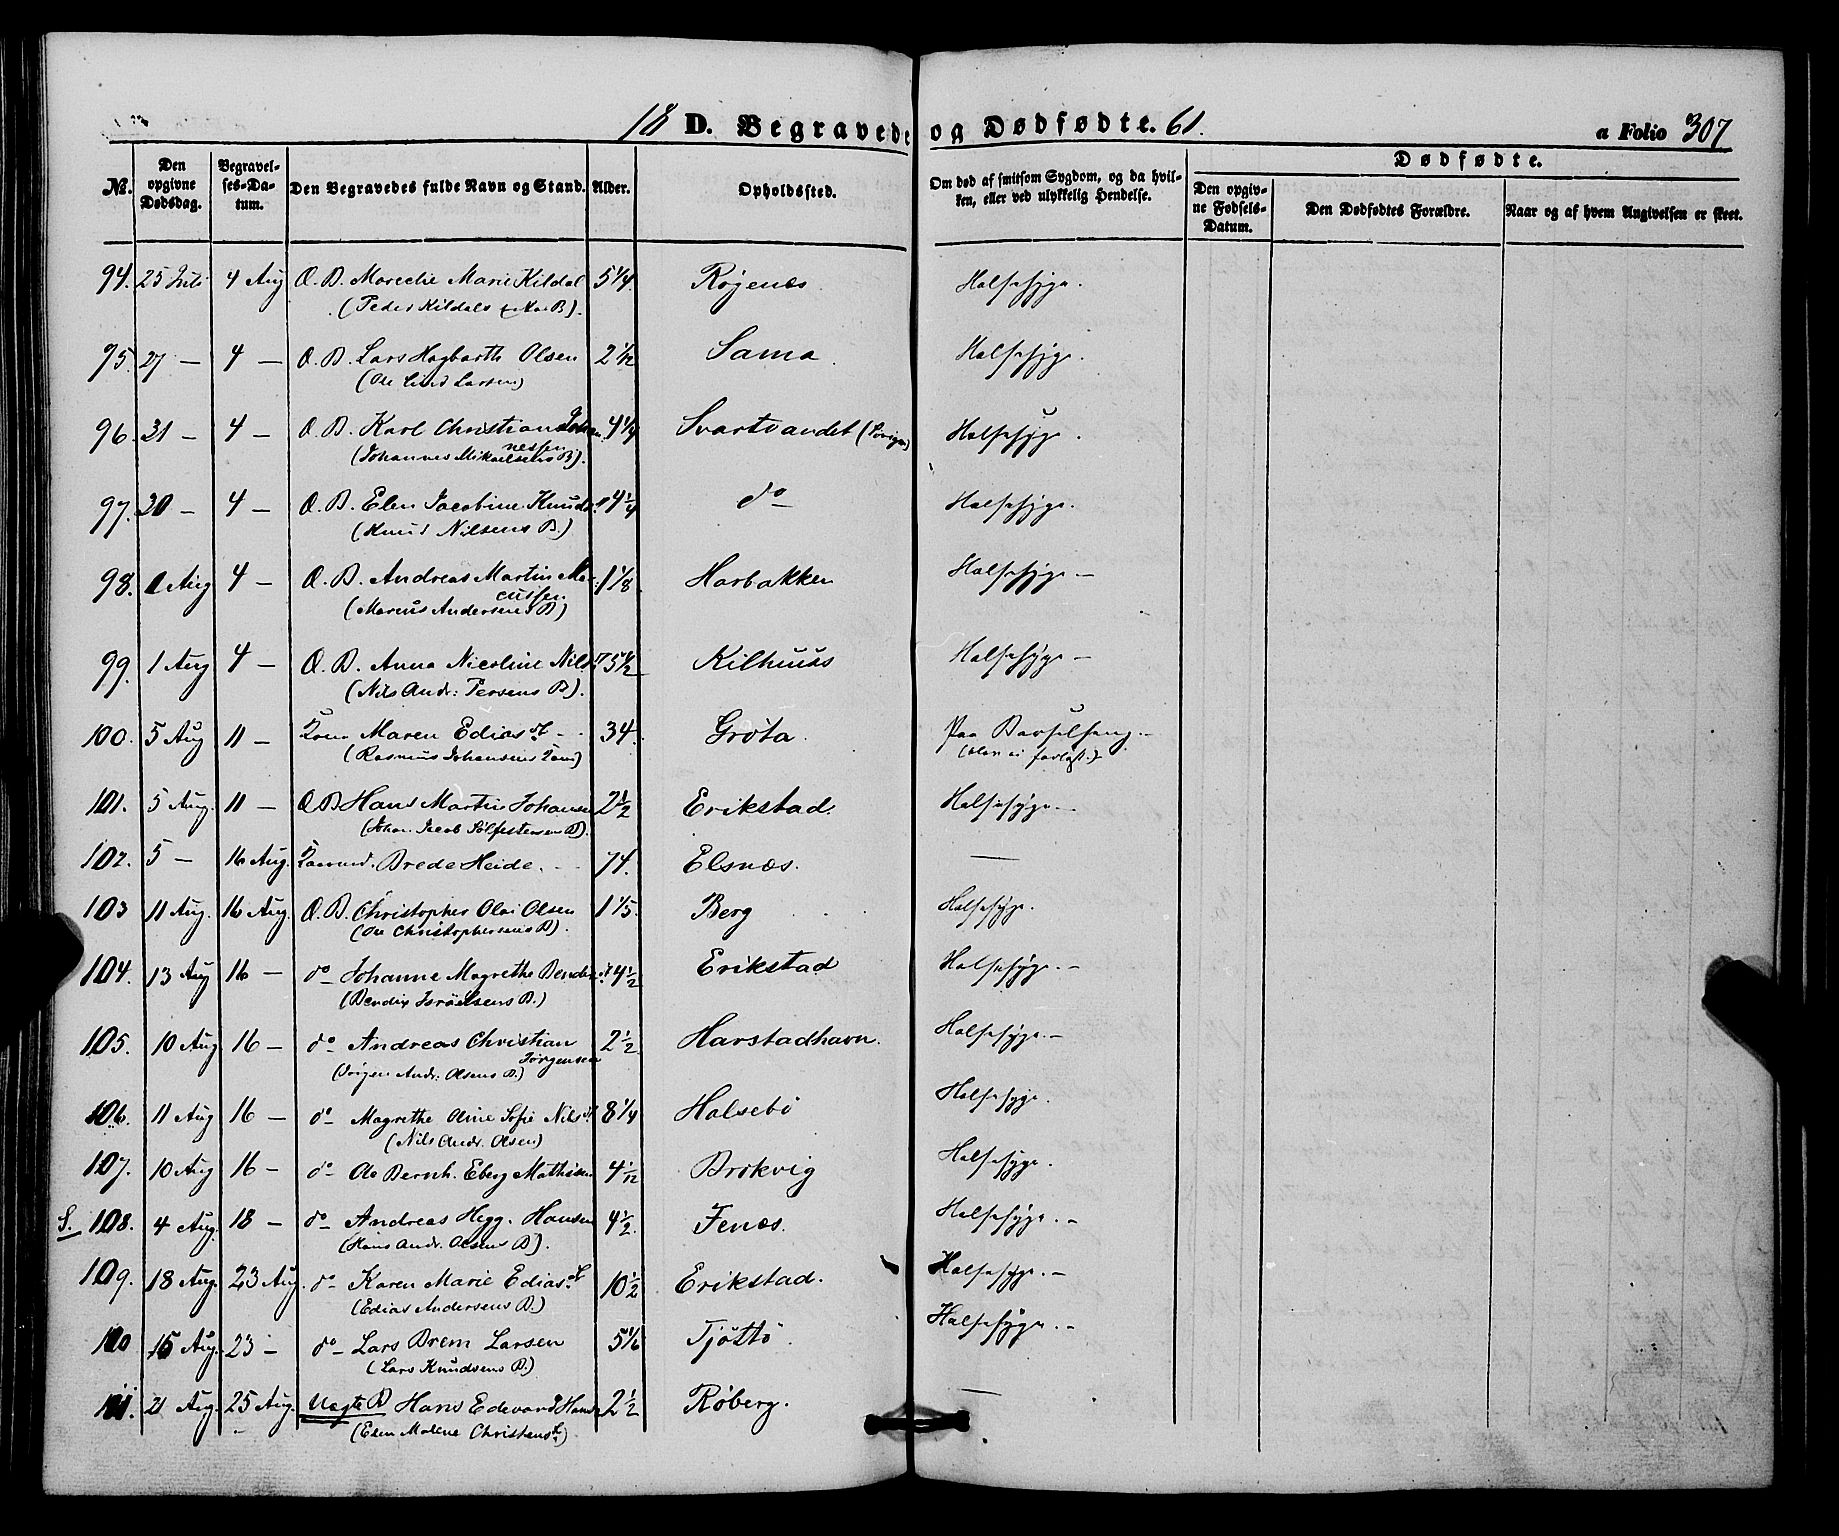 18 D. Begravede og Dødfødte. 61. a Folio 307
No. Den opgivne Dødsdag. Begravelses-Datum. Den Begravedes fulde Navn og Stand. Alder. Opholdssted. Om død af smitsom Sygdom, og da hvilken, eller ved ulykkelig Hendelse. Dødfødte.
Den opgivne Fødsels-Datum. Den Dødfødtes Forældre. Naar og af hvem Angivelsen er skeet.
94. 25 Juli 4 Aug Æ. B. Marie Kildal 5 1/4. Røgenæs. Halsesyge.
(Peder Kildals B).
95. 27 — 4 — Æ. B. Lars Hagbarth Olsen 2 1/12 Sama. Halsesyge.
(Ole Larsen)
96. 31 — 4 — Æ. B. Karl Christian Johan 4 1/4 Svartvandet Halsesyge.
nessen
(Johannes Mikaelsens B).
97. 30 — 4 — Æ. B. Elen Jacobine Knudsd 4 1/4 do — Halsesyge.
(Knud Nilsens B.)
98. 1 Aug 4 — Æ. B. Andreas Martin Mar 1 1/8 Harbakken Halsesyge —
cussen
(Marcus Andersens B)
99. 1 Aug 4 — Æ. B. Anna Nicoline Nilsd 5 1/2 Kilhuus Halsesyge —
(Nils Andr: Persens B).
100. 5 Aug 11 — Kone Maren Edias d 34. Grøta. Paa Barselseng. —
(Rasmus Johansens Kone)
101. 5 Aug. 11 — Æ B Hans Martin Johansen 2 1/2 Erikstad. Halsesyge. —
(Johan Jacob B).
102. 5 — 16 Aug. Brede Heide. 74. Elsnæs. —
103 11 Aug. 16 Aug. Æ. B. Christopher Olai Olsen 1 1/5. Berg Halsesyge.
(Ole Christophersens B).
104. 13 Aug 16 — do — Johanne Magrethe Bendixd 4 1/2 Erikstad Halsesyge. —
(Bendix Israelsens B.)
105. 10 Aug 16 — do — Andreas Christian 2 1/2 Harstadhavn. Halsesyge. —
Jørgensen
(Jørgen Andr: Olsens B.)
106. 11 Aug 16 — do — Magrethe Aine Sofie Nilsd 8 1/4 Halsebø Halsesyge.
(Nils Andr. Olsen)
107. 10 Aug 16 — do — Ole Bernh. Eberg Mathisen 4 1/12 Brokvig Halsesyge.
S. 108. 4 Aug. 18 — do — Andreas Hegg. Hansen 4 1/2. Fenæs. Halsesyge. —
(Hans Andr. Olsens B).
109. 18 Aug. 23 Aug. do — Karen Marie Edias d 10 1/2 Erikstad. Halsesyge. —
(Edias Andersens B.)
110 15 Aug. 23 — do — Lars Brem Larsen 5 1/6 Tjøttø. Halsesyge. —
(Lars Knudsens B.)
111. 21 Aug. 25 Aug. Uægte B Hans Edevard Hansen 2 1/2 Røberg. —
(Elen Malene Christensd)